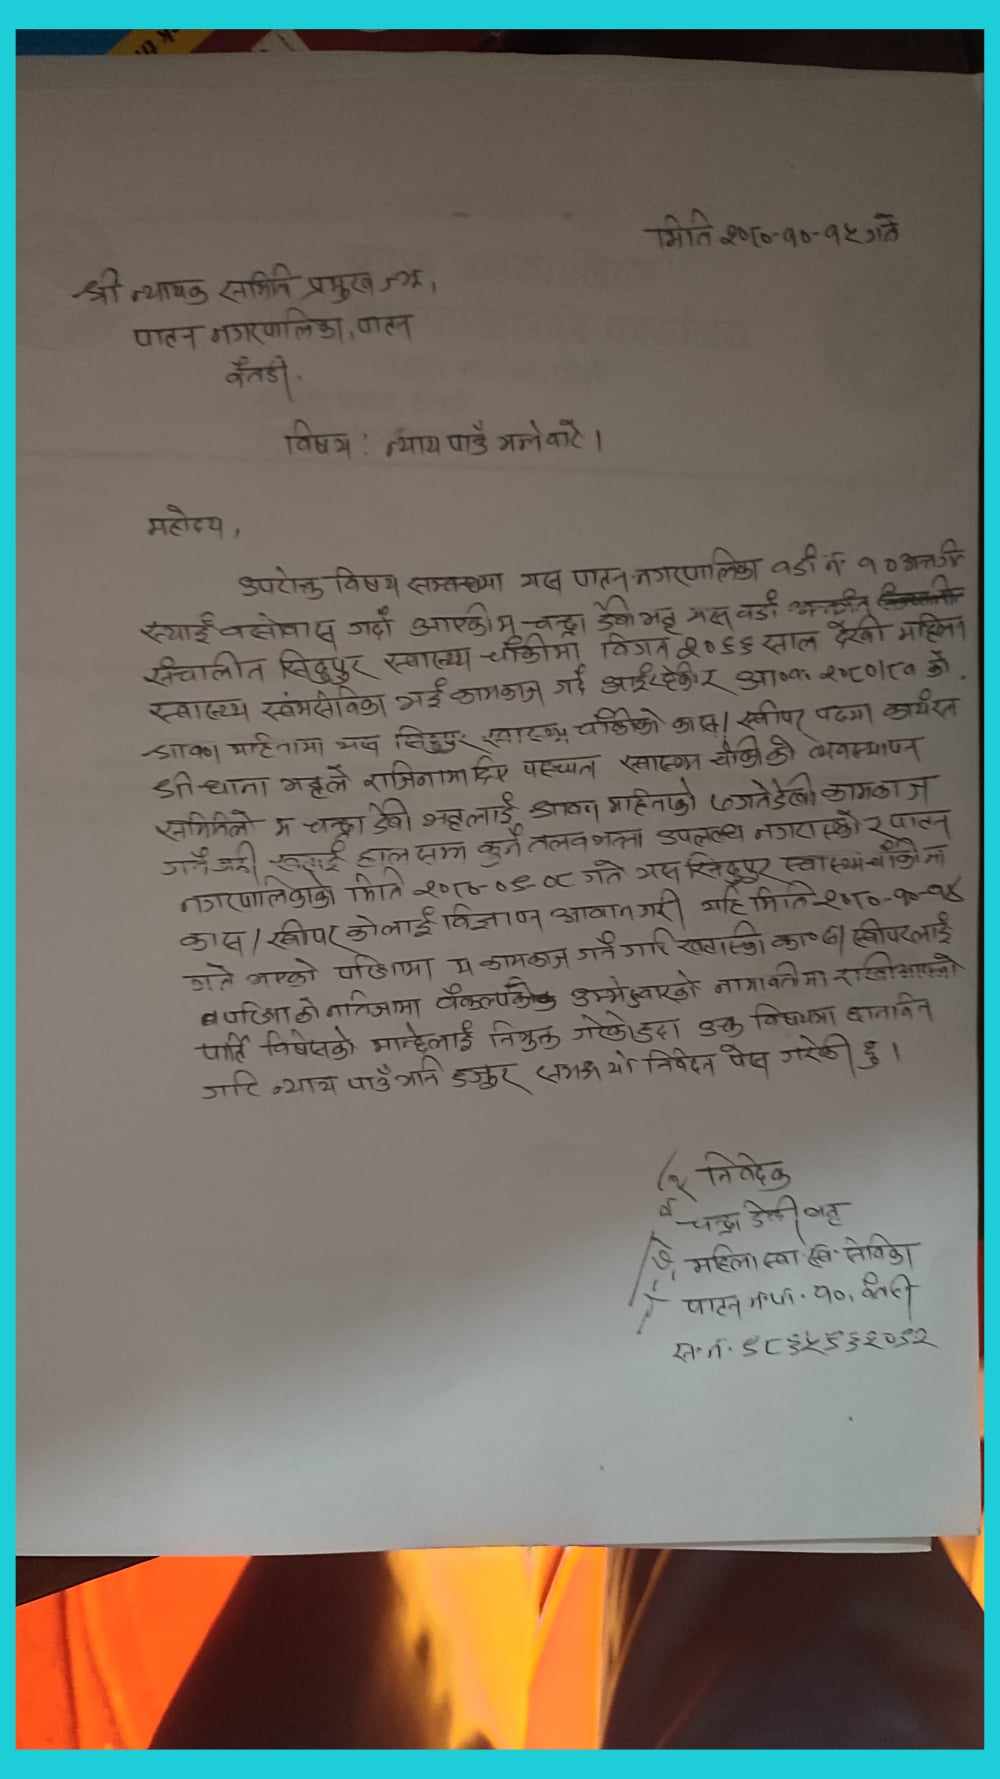 मिति २०८०-१०-१५ गते
श्री न्यायिक समिति प्रमुख ज्यू,
पाटन नगरपालिका, पाटन
बैतडी.
विषय : न्याय पाउँ भन्ने बारे ।
महोदय,
उपरोक्त विषय सम्बन्धमा यस पाटन नगरपालिका वडा नं १० अन्तर्गत
स्थाई बसोबास गर्दै आएकी म चन्द्रा देवी भट्ट यस वडा अन्तर्गत
संचालीत सिद्धपुर स्वास्थ्य चौकीमा विगत २०६६ साल देखी महिला
स्वास्थ्य स्वंमसेविका भई कामकाज गर्दै आईरहेकी र आ०व० २०८०/८१ को
श्रावण महिनामा यस सिद्धपुर स्वास्थ्य चौकीको का०स०/स्वीपर पदमा कार्यरत
श्री धाना भट्टले राजिनामा दिए पश्चात स्वास्थ्य चौकीको व्यवस्थापन
समितिले म चन्द्रा देवी भट्टलाई श्रावण महिनाको ७ गते देखी कामकाज
गर्न हाल सम्म कुनै तलब भत्ता उपलब्ध नगराएको र पाटन
नगरपालिकाको मिति २०८०-०९-०८ गते यस सिद्धपुर स्वास्थ्य चौकीमा
कास/स्वीपर कोलाई विज्ञापन आवान गरी यहि मिति २०८०-१०-१४
गते भएको परिक्षामा म कामकाज गर्ने गरि स्वीपरलाई
परिक्षाको नतिजामा बैकल्पिक उम्मेद्वारको नामावलीमा राखी आफ्नो
पार्टि विषेसको मान्छेलाई नियुक्त गरेको हुदा उक्त विषयमा छानविन
गरि न्याय पाउँ भनि हजुर समक्ष यो निवेदन पेस गरेकी छु ।
निवेदक
चन्द्रा देवी भट्ट
महिला स्वा. स्वं. सेविका
पाटन न.पा. १०, बैतडी
स.नं. ९८६५६६२०९२